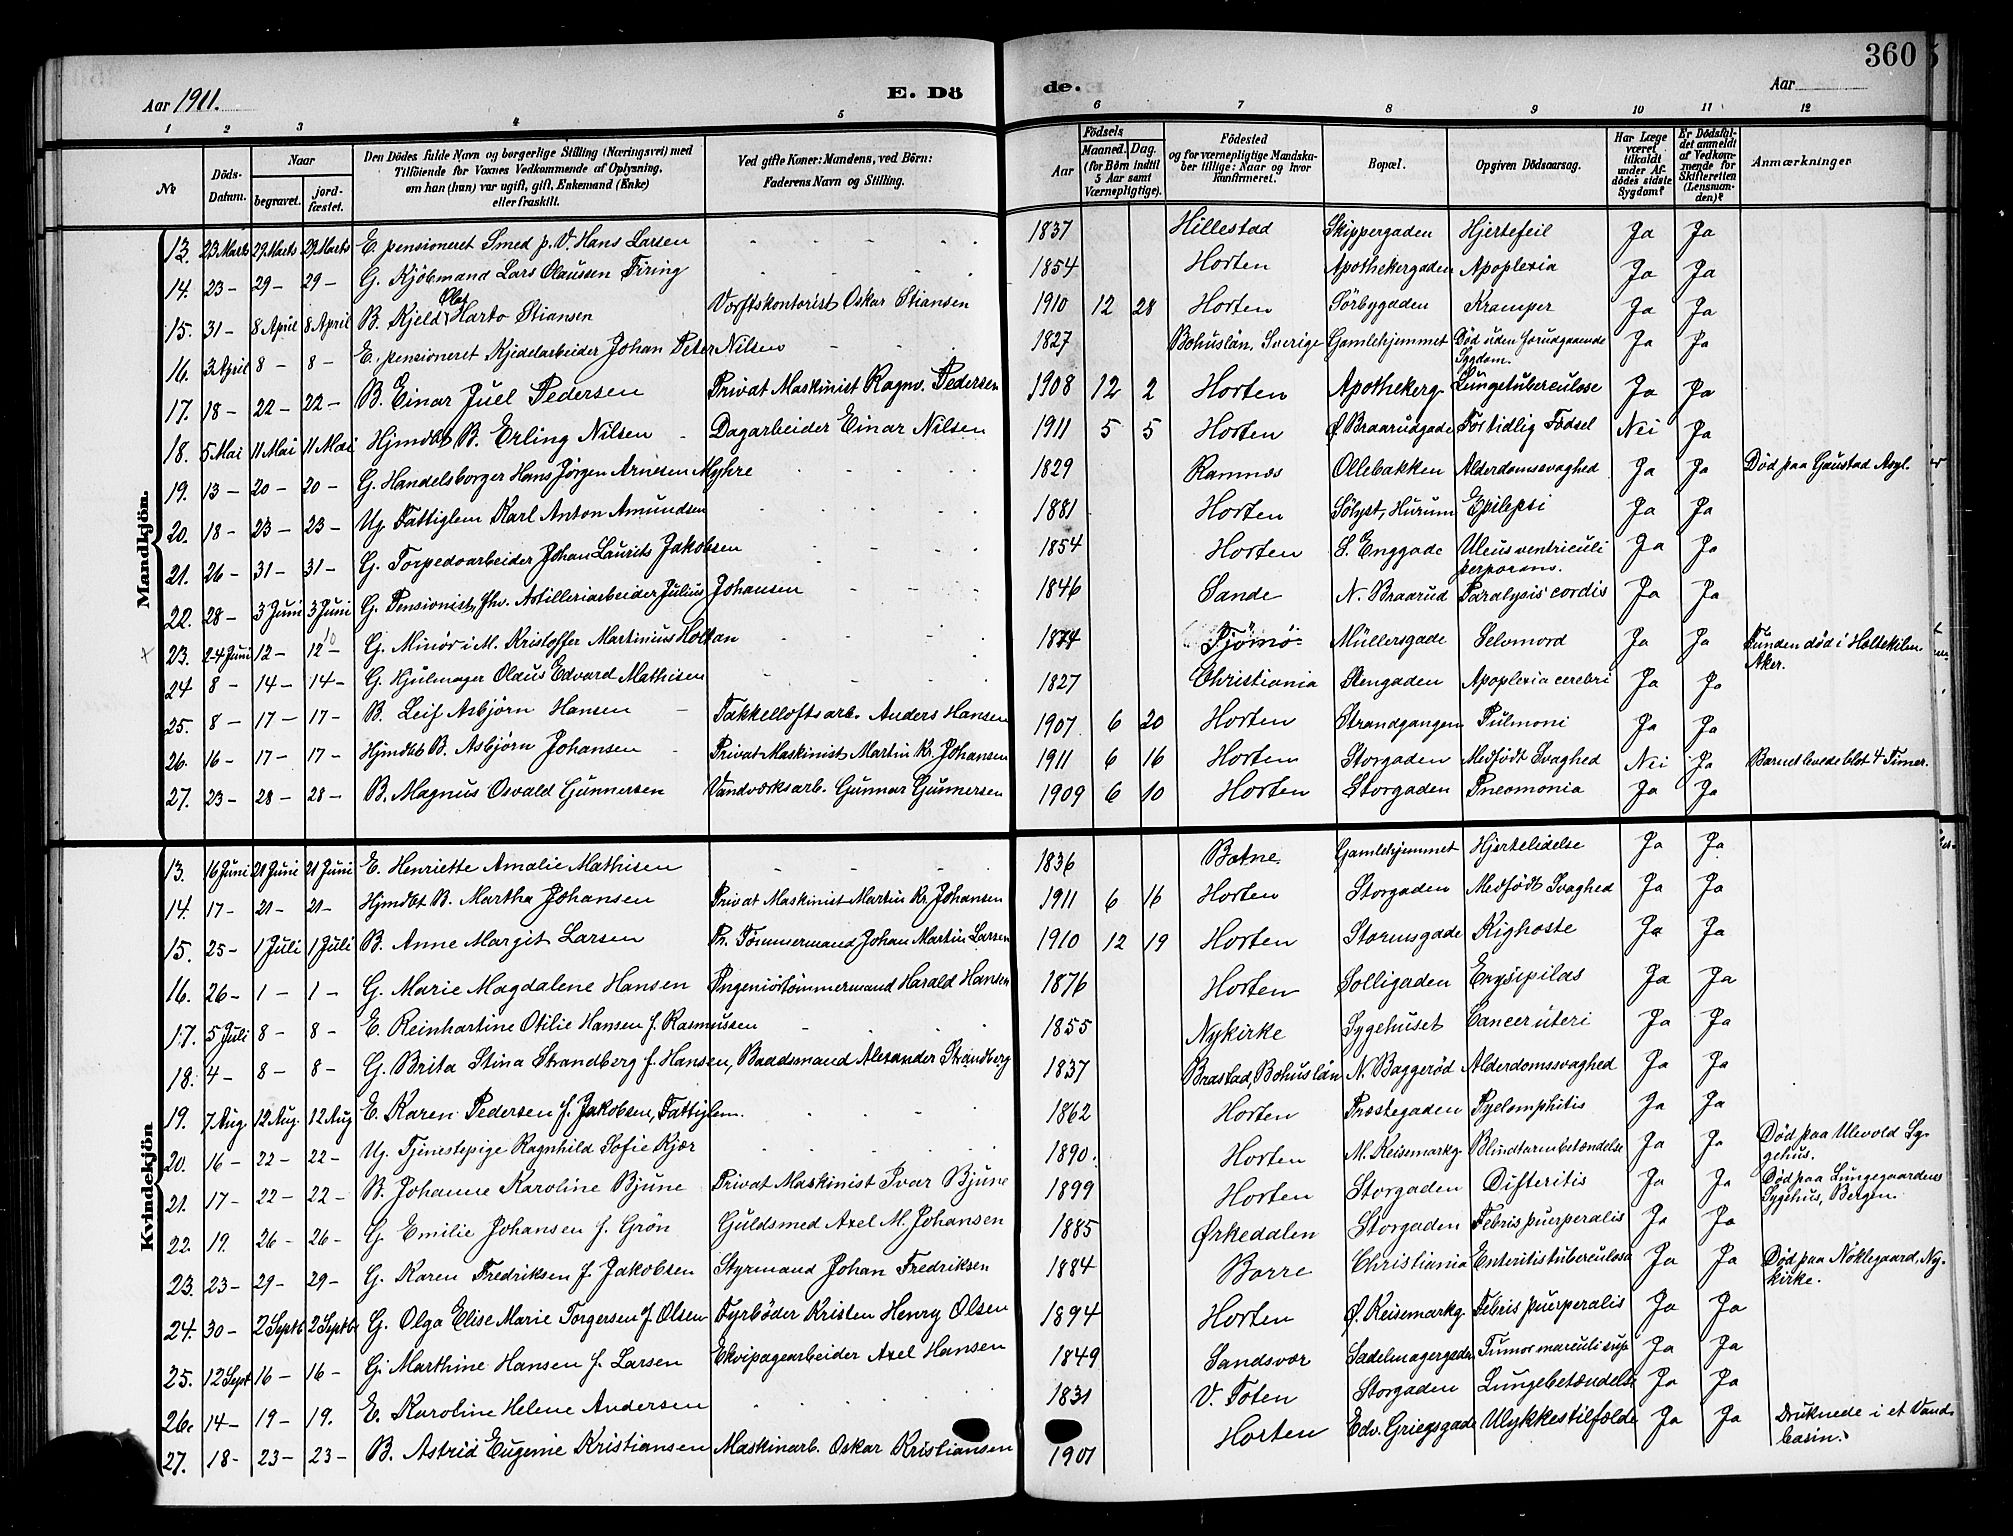 360
Aar 1911.
E. Dö de.
Aar
1 2 3 4 5 6 7 8 9 10 11 12
No
Döds-Datum.
Naar
begravet.
jordfæstet.
Den Dödes fulde Navn og borgerlige Stilling (Næringsvei) med
Tilföiende for Voxnes Vedkommende af Oplysning,
om han (hun) var ugift, gift, Enkemand (Enke)
eller fraskilt.
Ved gifte Koner: Mandens, ved Börn:
Faderens Navn og Stilling.
Födsels
Aar
Maaned. Dag.
(for Börn indtil
5 Aar samt
Værnepligtige).
Födested
og for værnepligtige Mandskaber tillige: Naar og hvor
konfirmeret.
Bopæl.
Opgiven Dödsaarsag.
Har Læge været tilkaldt under Afdödes sidste Sygdom?
Er Dödsfaldet anmeldt af Vedkommende for Skifteretten (Lensmanden)?
Anmærkninger
Mandkjön.
13. 23 Marts 29 Marts 29 Marts E. pensioneret Smed p. V. Hans Larsen 1837 Hillestad Skippergaden Hjertefeil Ja Ja
14. 23 – 29 – 29 – G. Kjöbmand Lars Olaussen Firing 1854 Horten Apothekergaden Apoplexia Ja Ja
15. 31 – 8 April 8 April B. Kjeld Olaf Harto Stiansen Værftskontorist Oskar Stiansen 1910 12 28 Horten Sörbygaden Kramper Ja Ja
16. 3 April 8 – 8 – E. pensioneret Kjedelarbeider Johan Peter Nilsen 1827 Bohuslän, Sverige Gamlehjemmet Död uden forudgaaende Sygdom. Ja Ja
17. 18 – 22 – 22 – B. Einar Juel Pedersen Privat Maskinist Ragnv. Pedersen 1908 12 2 Horten Apothekerg. Lungetuberculose Ja Ja
18. 5 Mai 11 Mai 11 Mai Hjmdbt B. Erling Nilsen Dagarbeider Einar Nilsen 1911 5 5 Horten Ø. Braarudgade For tidlig Födsel Nei Ja
19. 13 – 20 – 20 – G. Handelsborger Hans Jörgen Arnesen Myhre 1829 Ramnæs Ollebakken Alderdomssvaghed Ja Ja Död paa Gaustad Asyl.
20. 18 – 23 – 23 – Ug. Fattiglem Karl Anton Amundsen 1881 Horten Sölyst, Hurum Epilepsi Ja Ja
21. 26 – 31 – 31 – G. Torpedoarbeider Johan Laurits Jakobsen 1854 Horten S. Enggade Ulcus ventriculi perforans. Ja Ja
22. 28 – 3 Juni 3 Juni G. Pensionist, fhv. Artilleriarbeider Julius Johansen 1846 Sande N. Braarud Paralysis cordis Ja Ja
23. 2-4 Juni 12 – 12 – G. Minör i M. Kristoffer Martinius Holtan 1874 Tjömö Müllersgade Selvmord Ja Ja Funden död i Holtekilen Aker.
24 8 – 14 – 14 – G. Hjulmager Olaus Edvard Mathisen 1827 Christiania Stengaden Apoplexia cerebri Ja Ja
25. 8 – 17 – 17 – B. Leif Asbjörn Hansen Takkelloftsarb. Anders Hansen 1907 6 20 Horten Strandgangen Pulmoni Ja Ja
26. 16 – 17 – 17 – Hjmdbt B. Asbjörn Johansen Privat Maskinist Martin Kr. Johansen 1911 6 16 Horten Storgaden Medfödt Svaghed Nei Ja Barnet levede blot 4 Timer.
27. 23 – 28 – 28 – B. Magnus Osvald Gunnersen Vandværksarb. Gunnar Gunnersen 1909 6 10 Horten Storgaden Pneomonia Ja Ja
Kvindekjön
13. 16 Juni 21 Juni 21 Juni E. Henriette Amalie Mathisen 1836 Botne Gamlehjemmet Hjertelidelse Ja Ja
14. 17 – 21 – 21 – Hjmdbt B. Martha Johansen Privat Maskinist Martin Kr. Johansen 1911 6 16 Horten Storgaden Medfödt Svaghed Ja Ja
15. 25 – 1 Juli 1 Juli B. Anne Margit Larsen Pr. Tömmermand Johan Martin Larsen 1910 12 19 Horten Stormsgade Kighoste Ja Ja
16. 26 – 1 – 1 – G. Marie Magdalene Hansen Ingeniörtömmermand Harald Hansen 1876 Horten Solligaden Erysipilas Ja Ja
17. 5 Juli 8 – 8 – E. Reinhartine Otilie Hansen f. Rasmussen 1855 Nykirke Sygehuset Cancer uteri Ja Ja
18. 4 – 8 – 8 – G. Brita Stina Strandberg f. Hansen, Baadsmand Alexander Strandberg 1837 Brastad, Bohuslän N. Baggeröd Alderdomssvaghed Ja Ja
19. 7 Aug. 12 Aug. 12 Aug E. Karen Pedersen f. Jakobsen, Fattiglem. 1862 Horten Præstegaden Pyelomphitis Ja Ja
20. 16 – 22 – 22 – Ug. Tjenestepige Ragnhild Sofie Kjær 1890. Horten M. Reisemarkg. Blindtarmbetændelse Ja Ja Död paa Ulevold Sygehus.
21. 17 – 22 – 22 – B. Johanne Karoline Bjune Privat Maskinist Ivar Bjune 1899 Horten Storgaden Difteritis Ja Ja Död paa Lungegaardens Sygehus, Bergen.
22. 19. 26 – 26 – G. Emilie Johansen f. Grön Guldsmed Axel M. Johansen 1885 Ørkedalen Storgaden Febris puerperalis Ja Ja
23. 23 – 29 – 29 – G. Karen Fredriksen f. Jakobsen Styrmand Johan Fredriksen 1884 Borre Christiania Enteritis tuberculosa Ja Ja Död paa Nöklegaard, Nykirke.
24. 30 – 2 Septb 2 Septbr G. Olga Elise Marie Torgersen f. Olsen Fyrböder Kristen Henry Olsen 1894 Horten Ø. Reisemarkg. Febris puerperalis Ja Ja
25. 12 Sept 16 – 16 – G. Marthine Hansen f. Larsen Ekvipagearbeider Axel Hansen 1849 Sandsvær Sadelmagergaden Tumor Ja Ja
26. 14 – 19 – 19. E. Karoline Helene Andersen 1831 V. Toten Storgaden Lungebetændelse Ja Ja
27. 18 – 23 – 23 – B. Astrid Eugenie Kristiansen Maskinarb. Oskar Kristiansen 1901 Horten Edv. Griegsgade Ulykkestilfælde Ja Ja Druknede i et Vandbasin.